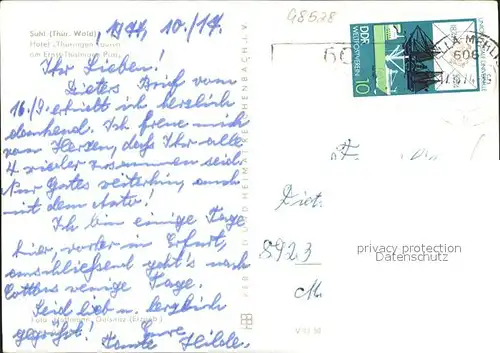 98528
Suhl (Thür. Wald)
Hotel "Thüringen Tourist"
am Ernst-Thälmann-Platz
10./17.
Ihr Lieben!
Dieters Brief vom
16./9. erhielt ich herzlich
dankend. Ich freue mich
von Herzen, daß Ihr alle
4 wieder zusammen seid.
Nur Gutes weiterhin, auch
mit dem Auto!
Ich bin einige Tage
hier, vorher in Erfurt,
anschließend geht's nach
Cottbus wenige Tage.
Seid lieb u. herzlich
gegrüßt! Eure
Tante Hilde.
BILD UND HEIMAT REICHENBACH I. V.
DDR
WELTPOSTVEREIN
10
LA-MEHLIS
608
60
Fr.
Diet
8923
privacy protection
paramount
M
V 11 50